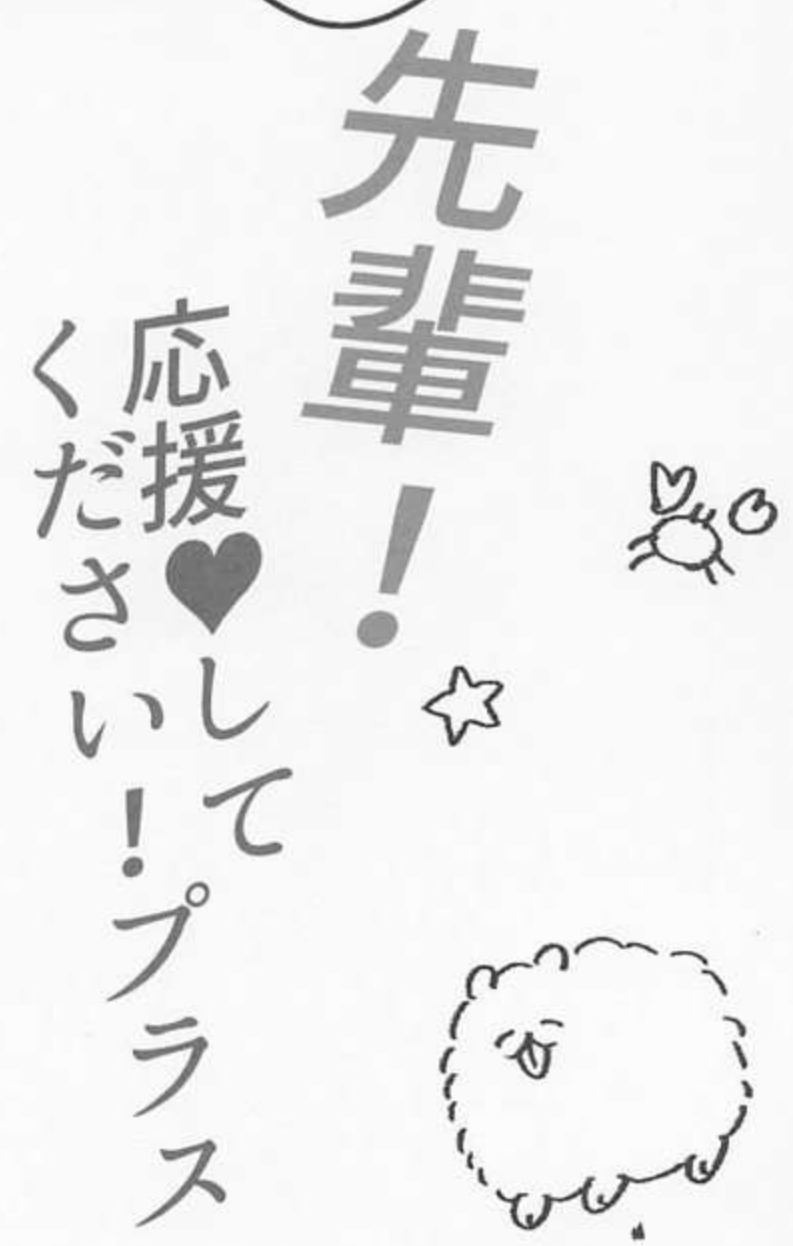 先輩！
応援♥して
ください！プラス